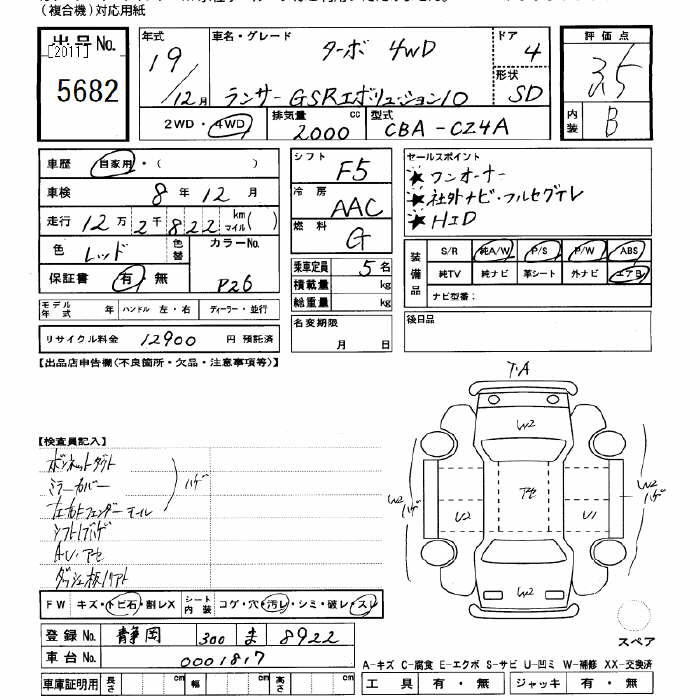 (複合機)対応用紙
出品No.
[2011]
5682
年式
19
12月
車名・グレード
ターボ 4WD
ランサーGSRエボリューション10
ドア
4
形状
SD
2WD・4WD
排気量
2000 cc
型式
CBA-CZ4A
評価点
3.5
内装
B
車歴 自家用・( )
車検 8年 12月
走行 12万2千822 km マイル( )
色 レッド 色替
カラーNo.
P26
保証書 有・無
シフト F5
冷房 AAC
燃料 G
乗車定員 5名
積載量 kg
総重量 kg
名変期限
月 日
セールスポイント
★ワンオーナー
★社外ナビ・フルセグTV
★HID
装備品
S/R 純A/W P/S P/W ABS
純TV 純ナビ 革シート 外ナビ エアB
ナビ型番:
後日品
モデル年式 年 ハンドル 左・右 ディーラー・並行
リサイクル料金 12900 円 預託済
【出品店申告欄(不良箇所・欠品・注意事項等)】
【検査員記入】
ボンネットダクト
ミラーカバー
左右フェンダーモール
ハゲ
シフトノブハゲ
AV.アセ
F.A
W2
W2
ハゲ
U2
アセ
U1
W2
ハゲ
W2
スペア
FW キズ・トビ石・割レX
シート内装 コゲ・穴・汚レ・シミ・破レ・スレ
登録No. 静岡 300 ま 8922
車台No. 0001817
車庫証明用 長さ cm 幅 cm 高さ cm
A-キズ C-腐食 E-エクボ S-サビ U-凹ミ W-補修 XX-交換済
工具 有・無 ジャッキ 有・無